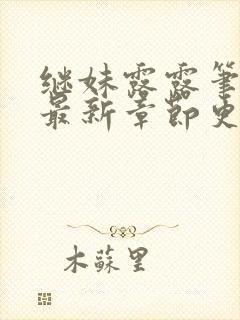 继妹露露笔
最新章节史
木蘇里